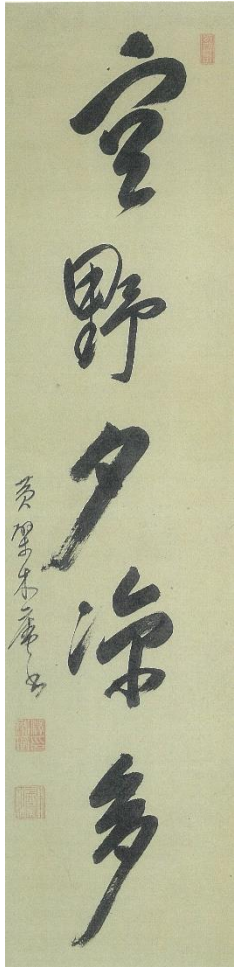 空野夕涼多
黄檗木菴書